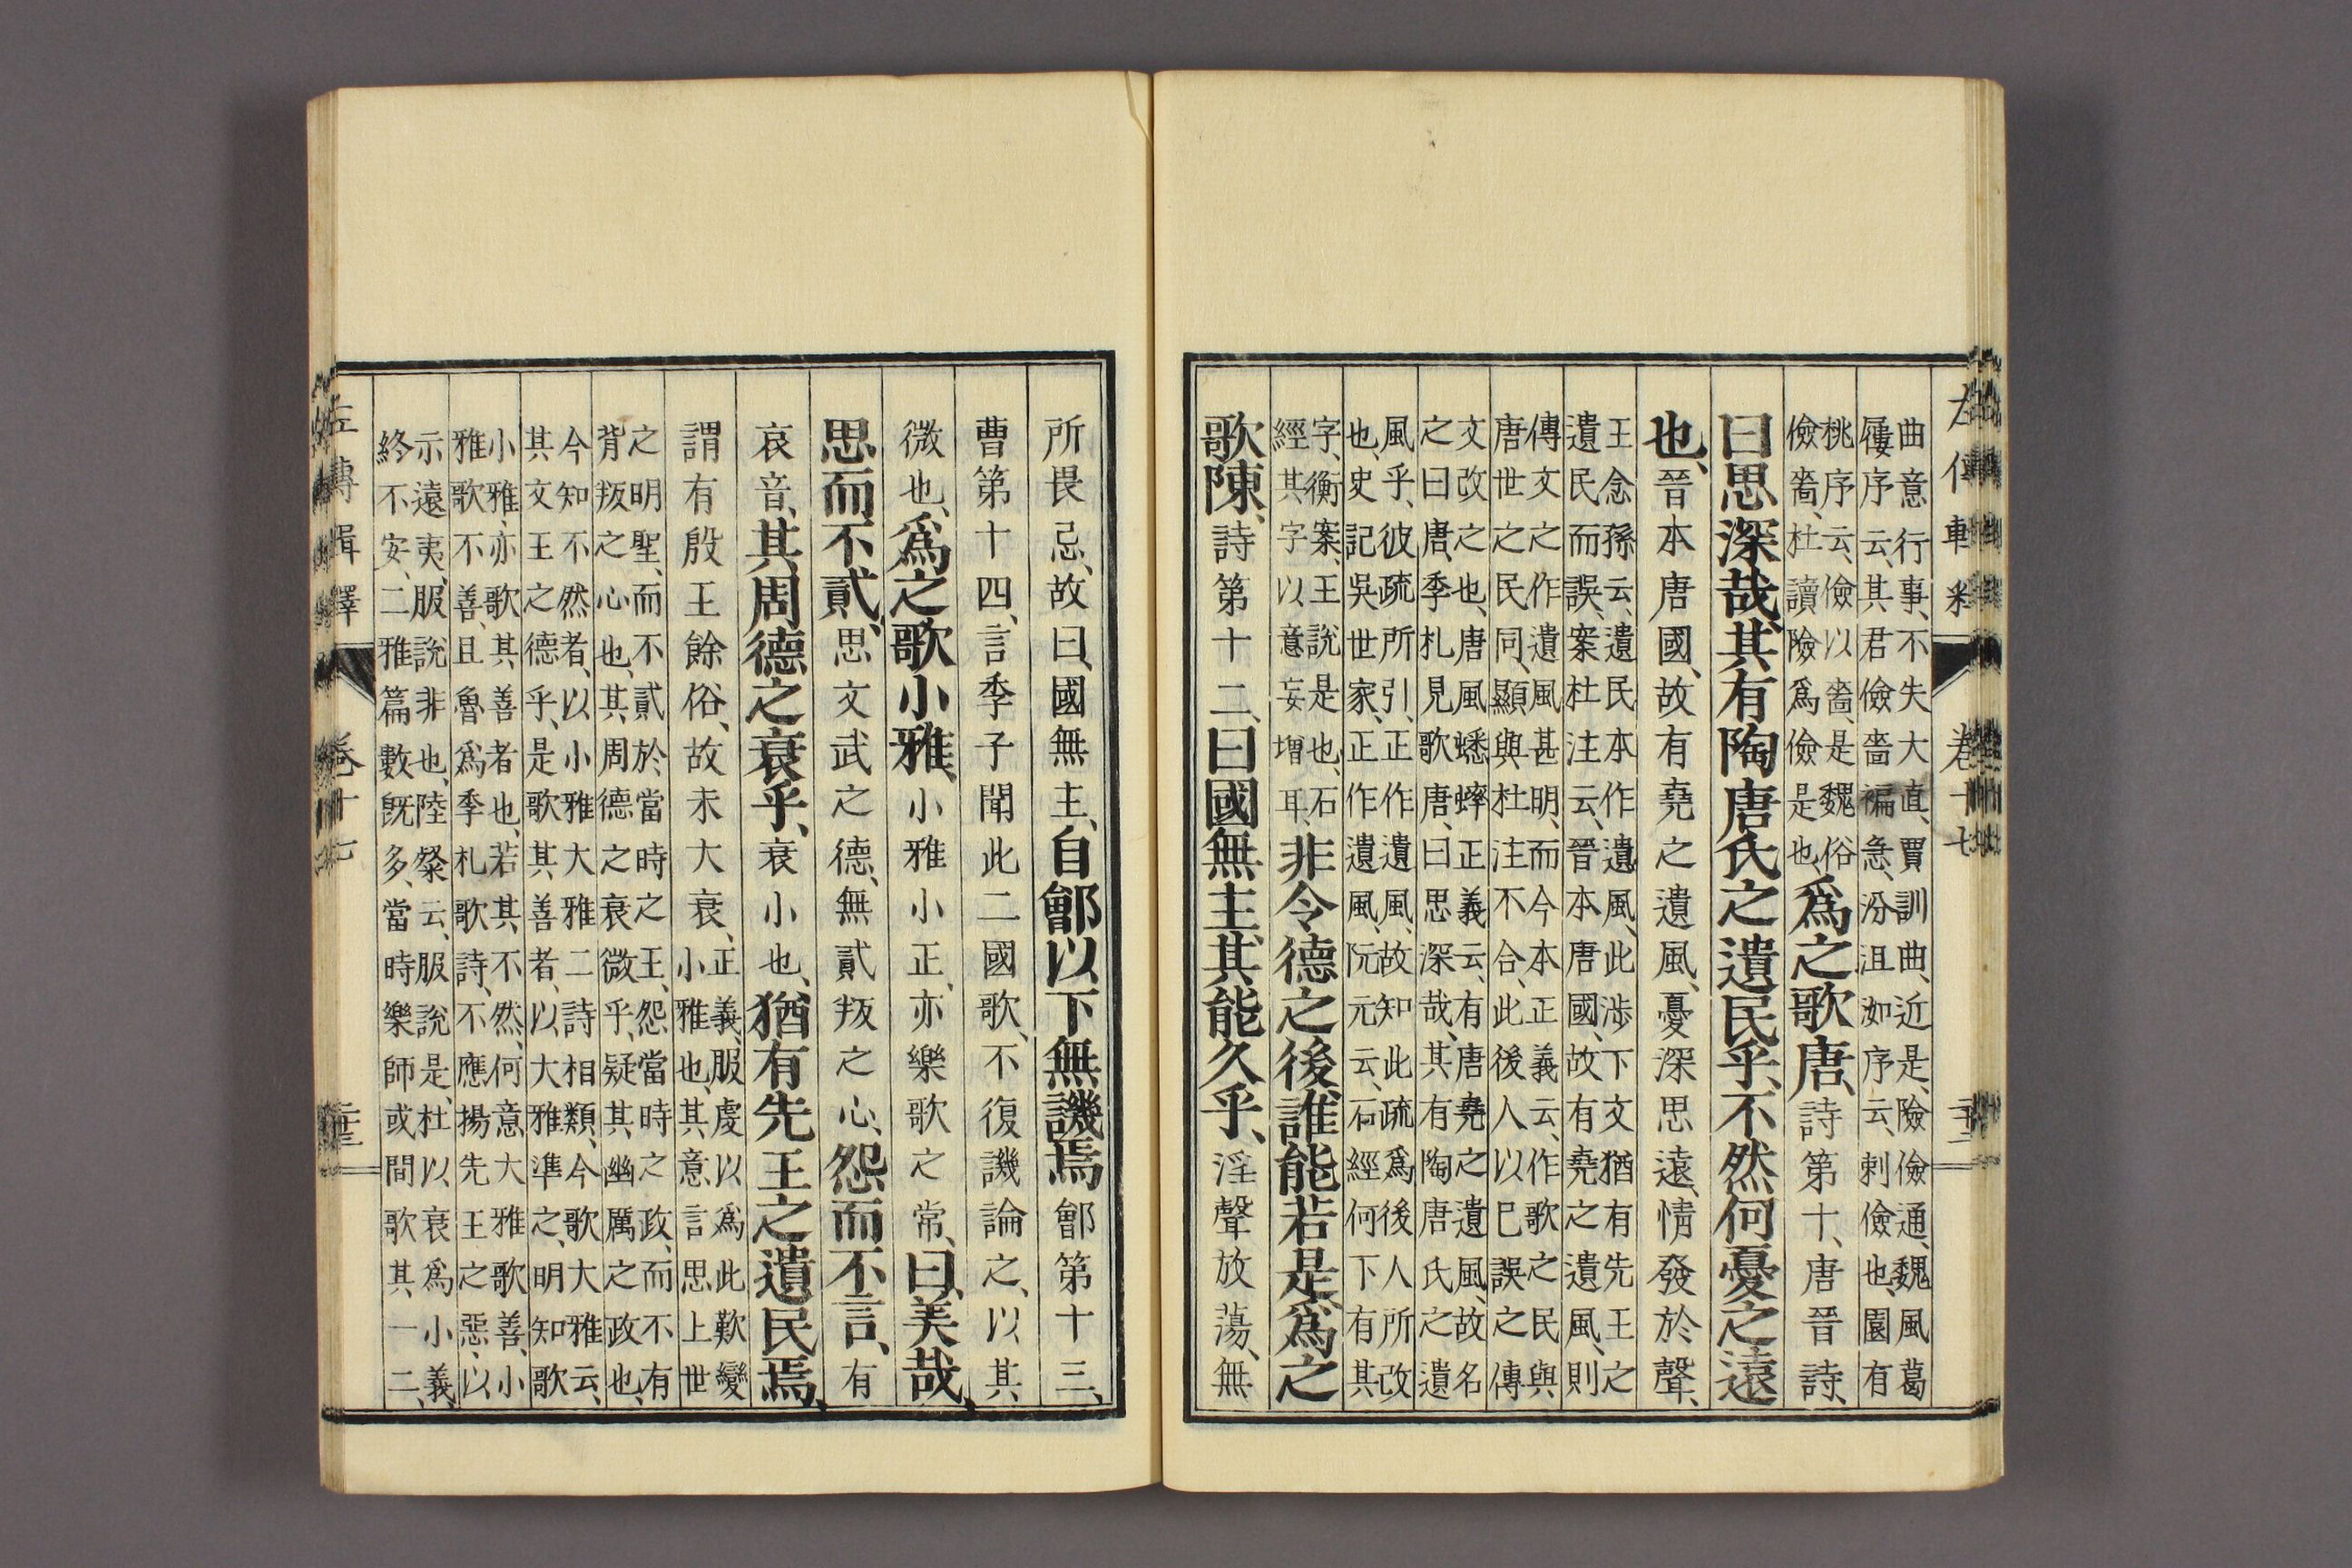 曲意行事、不失大直、賈訓曲、近是、險儉通、魏風葛
屨序云、其君儉嗇褊急、汾沮洳序云、刺儉也、園有
桃序云、儉以嗇、是魏俗
儉嗇、杜讀險爲儉是也、
爲之歌唐、詩第十、唐晉詩、
曰思深哉、其有陶唐氏之遺民乎、不然何憂之遠
也、晉本唐國、故有堯之遺風、憂深思遠、情發於聲、
王念孫云、遺民本作遺風、此涉下文猶有先王之
遺民而誤、案杜注云、晉本唐國、故有堯之遺風、則
傳文之作遺風甚明、而今本正義云、作歌之民與
唐世之民同、顯與杜注不合、此後人以巳誤之傳
文改之也、唐風蟋蟀正義云、有唐堯之遺風、故名
之曰唐、季札見歌唐、曰思深哉、其有陶唐氏之遺
風乎、彼疏所引、正作遺風、故知此疏爲後人所改
也、史記吳世家、正作遺風、阮元云、石經何下有其
字、衡案、王說是也、石
經其字以意妄增耳、
非令德之後、誰能若是、爲之
歌陳、詩第十二、曰國無主、其能久乎、淫聲放蕩、無
左傳輯釋 卷十七
所畏忌、故曰、國無主、自鄶以下無譏焉、鄶第十三、
曹第十四、言季子聞此二國歌、不復譏論之、以其
微也、爲之歌小雅、小雅小正、亦樂歌之常、曰、美哉、
思而不貳、思文武之德、無貳叛之心、怨而不言、有
哀音、其周德之衰乎、衰小也、猶有先王之遺民焉、
謂有殷王餘俗、故未大衰、
正義、服虔以爲此歎變
小雅也、其意言思上世
之明聖、而不貳於當時之王、怨當時之政、而不有
背叛之心也、其周德之衰微乎、疑其幽厲之政也、
今知不然者、以小雅大雅二詩相類、今歌大雅云、
其文王之德乎、是歌其善者、以大雅準之、明知歌
小雅、亦歌其善者也、若其不然、何意大雅歌善、小
雅歌不善、且魯爲季札歌詩、不應揚先王之惡、以
示遠夷、服說非也、陸粲云、服說是、杜以衰爲小義、
終不安、二雅篇數旣多、當時樂師或間歌其一二、
左傳輯釋 卷十七